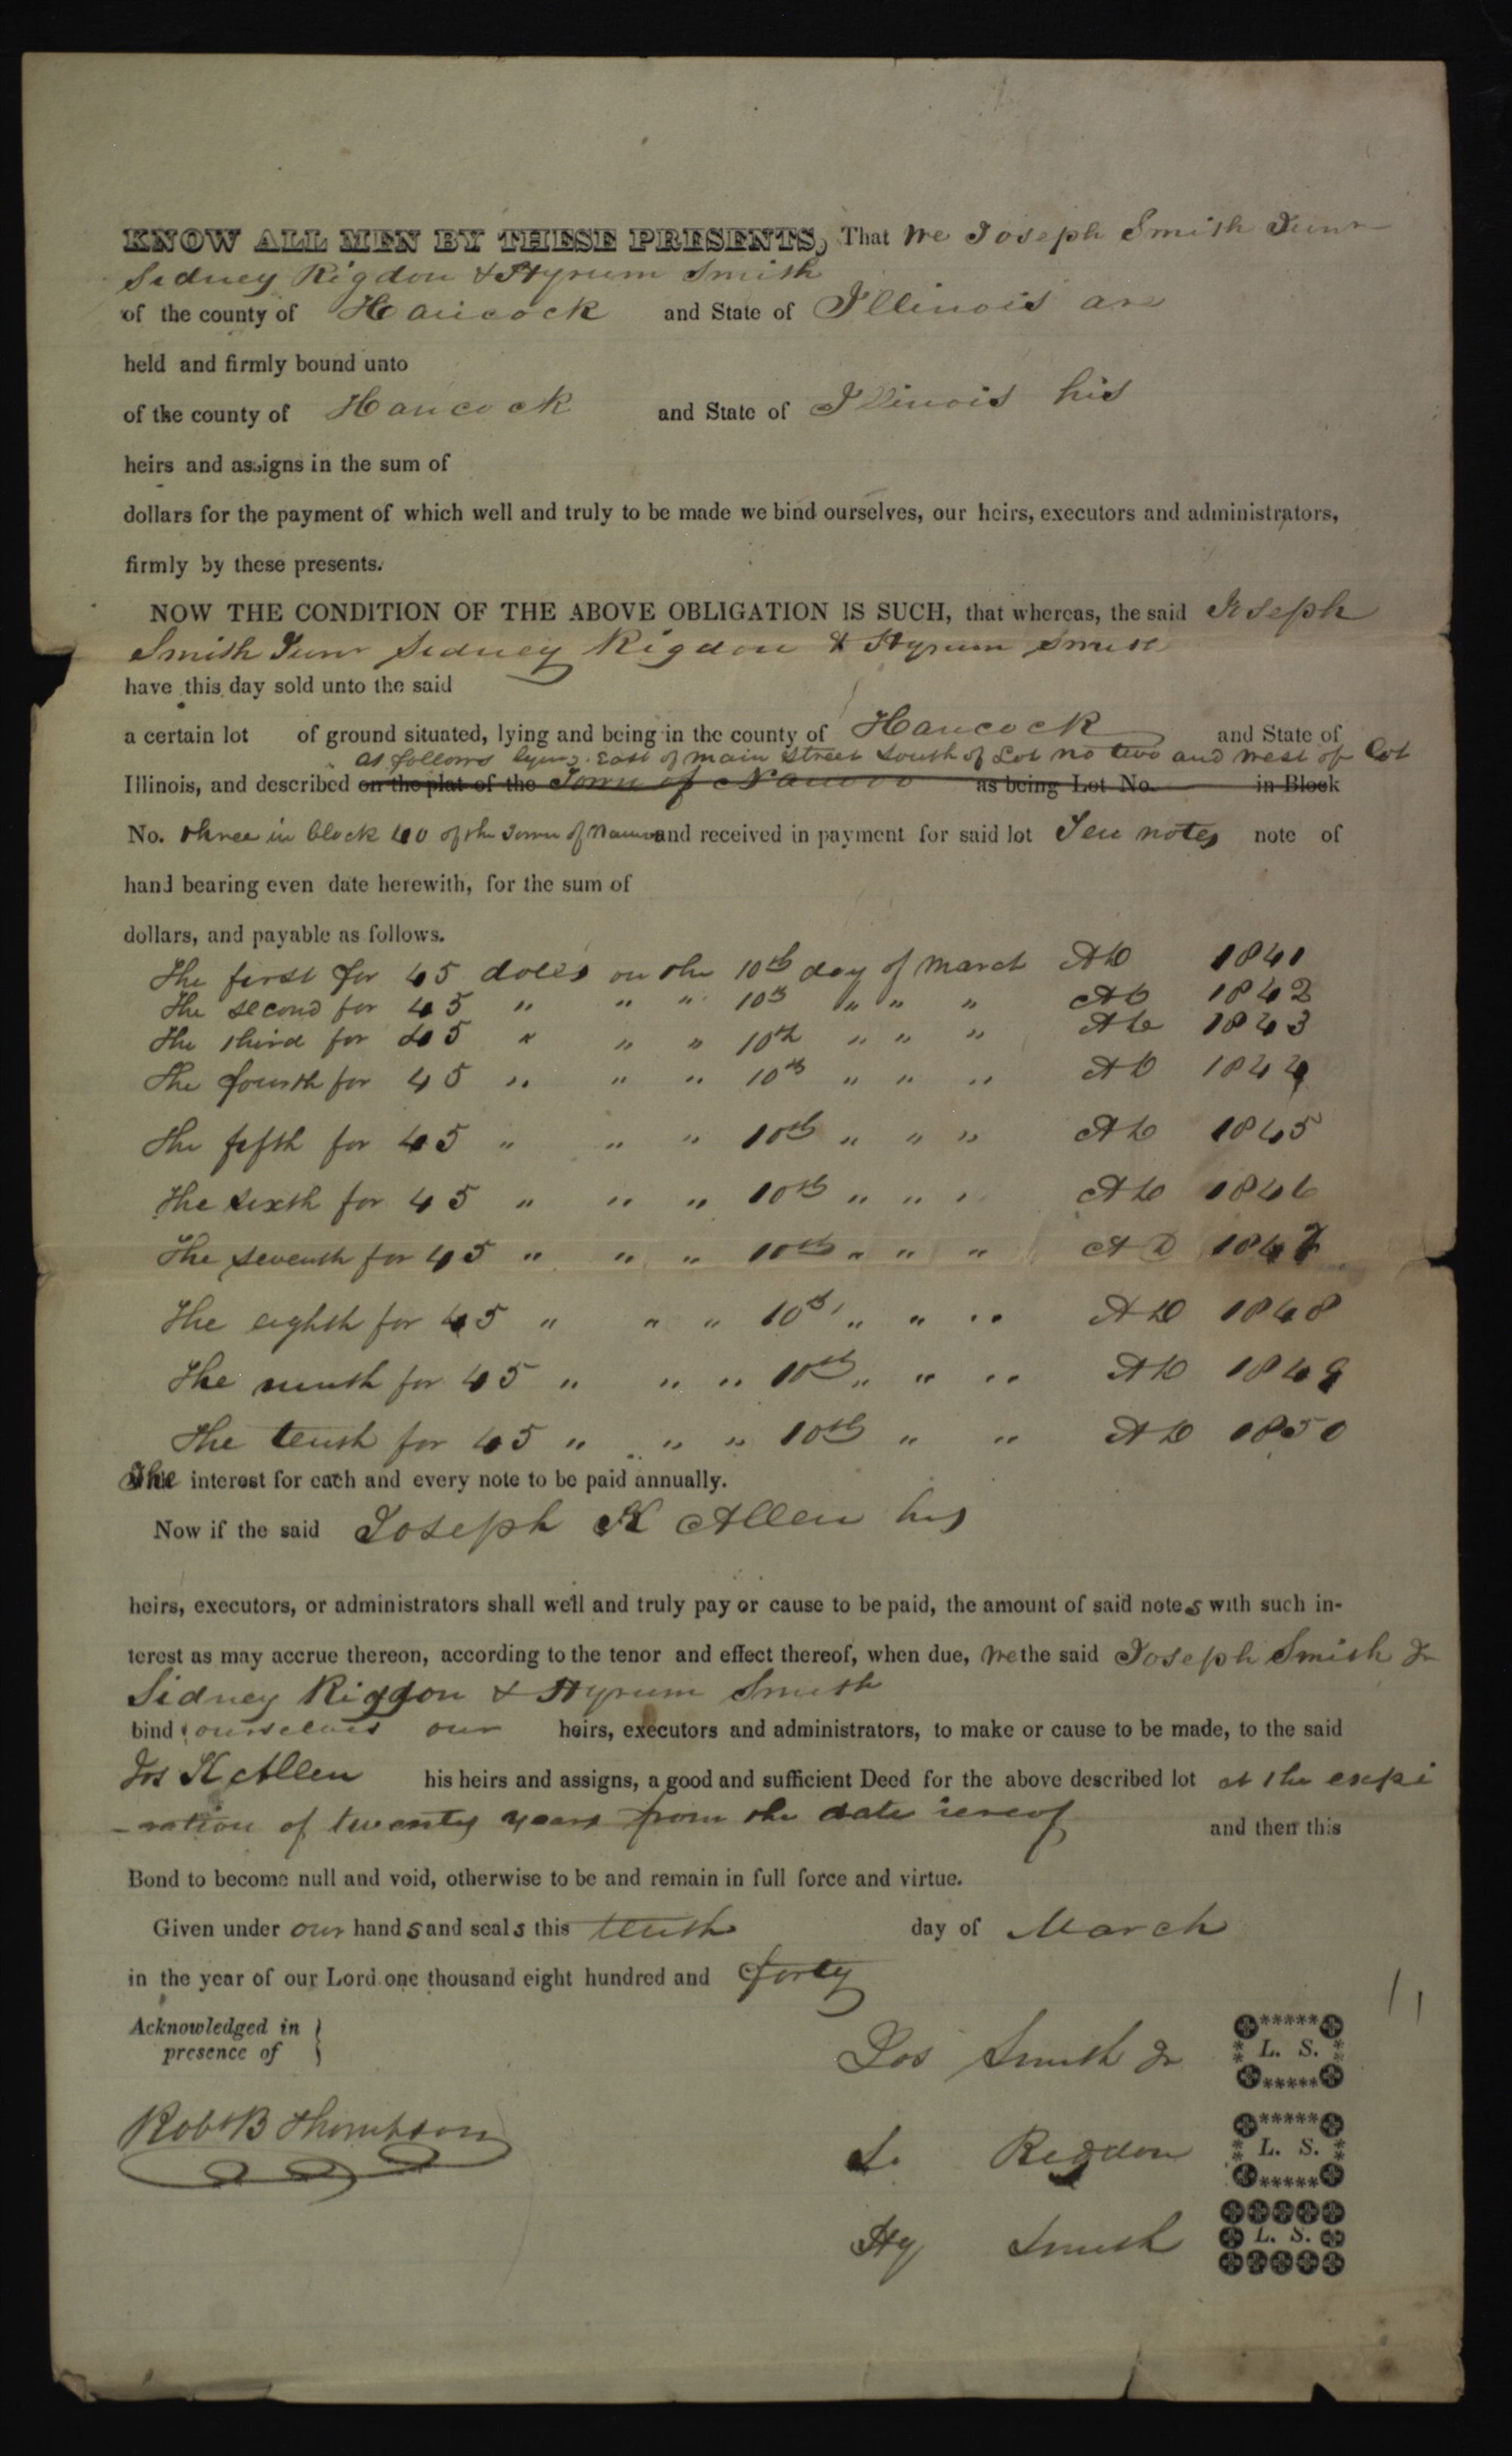 KNOW ALL MEN BY THESE PRESENTS, That We Joseph Smith Junr
Sidney Rigdon & Hyrum Smith
of the county of Hancock and State of Illinois are
held and firmly bound unto
of the county of Hancock and State of Illinois his
heirs and assigns in the sum of
dollars for the payment of which well and truly to be made we bind ourselves, our heirs, executors and administrators,
firmly by these presents.
NOW THE CONDITION OF THE ABOVE OBLIGATION IS SUCH, that whereas, the said Joseph
Smith Junr Sidney Rigdon & Hyrum Smith
have this day sold unto the said
a certain lot of ground situated, lying and being in the county of Hancock and State of
as follows lying East of Main Street South of Lot no two and West of Lot
Illinois, and described on the plat of the Town of Nauvoo as being Lot No. in Block
No. three in block 40 of the Town of Nauvoo and received in payment for said lot Ten notes note of
hand bearing even date herewith, for the sum of
dollars, and payable as follows.
The first for 45 dolls on the 10th day of March AD 1841
The second for 45 " " " 10th " " " AD 1842
The third for 45 " " " 10th " " " AD 1843
The fourth for 45 " " " 10th " " " AD 1844
The fifth for 45 " " " 10th " " " AD 1845
The sixth for 45 " " " 10th " " " AD 1846
The seventh for 45 " " " 10th " " " AD 1847
The eighth for 45 " " " 10th " " " AD 1848
The ninth for 45 " " " 10th " " " AD 1849
The tenth for 45 " " " 10th " " AD 1850
The interest for each and every note to be paid annually.
Now if the said Joseph K Allen his
heirs, executors, or administrators shall well and truly pay or cause to be paid, the amount of said notes with such in-
terest as may accrue thereon, according to the tenor and effect thereof, when due, We the said Joseph Smith Jr
Sidney Rigdon & Hyrum Smith
bind ourselves our heirs, executors and administrators, to make or cause to be made, to the said
Jos K Allen his heirs and assigns, a good and sufficient Deed for the above described lot at the expi
-ration of twenty years from the date hereof and then this
Bond to become null and void, otherwise to be and remain in full force and virtue.
Given under our hands and seals this tenth day of March
in the year of our Lord one thousand eight hundred and forty
Acknowledged in
presence of
Jos Smith Jr L. S.
Robt B Thompson
S. Rigdon L. S.
Hy Smith L. S.